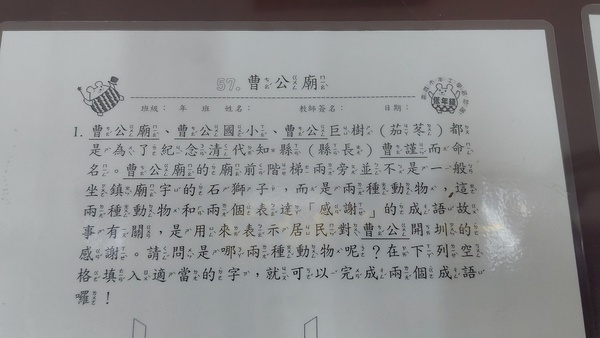 57. 曹公廟
班級： 年 班 姓名： 教師簽名： 日期：
低年級
1. 曹公廟、曹公國小、曹公巨樹（茄苳）都
是為了紀念清代知縣（縣長）曹謹而命
名。曹公廟的廟前階梯兩旁並不是一般
坐鎮廟宇的石獅子，而是兩種動物，這
兩種動物和兩個表達「感謝」的成語故
事有關，是用來表示居民對曹公開圳的
感謝。請問是哪兩種動物呢？在下列空
格填入適當的字，就可以完成兩個成語
囉！